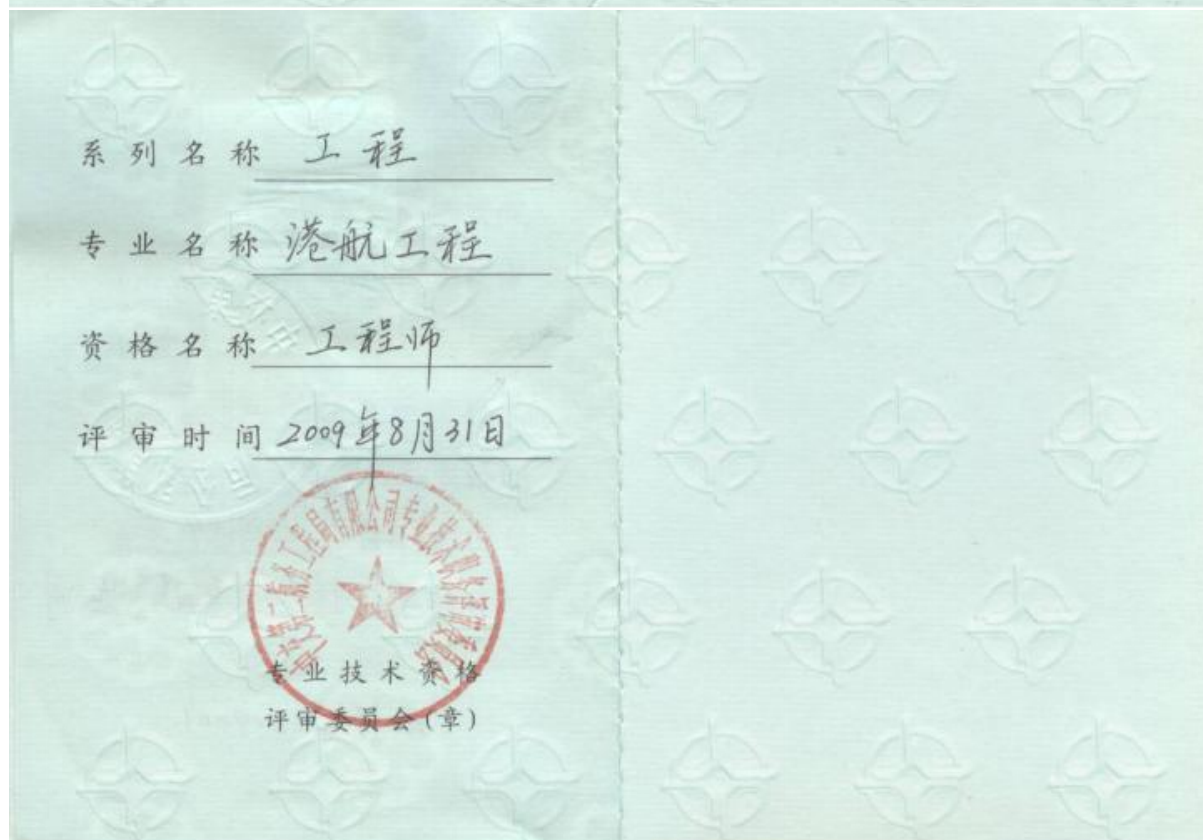 系列名称 工程
专业名称 港航工程
资格名称 工程师
评审时间 2009年8月31日
中交第二航务工程局有限公司专业技术职务评审委员会
专业技术资格
评审委员会(章)